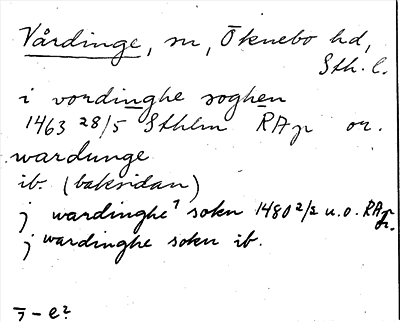 Vårdinge, sn, Öknebo hd,
Sth. l.
i vordinghe soghen
1463 28/5 Sthlm RAp or.
wardunge
ib. (baksidan)
j wardinghe¹ sokn 1480 2/2 u.o. RAp or.
j wardinghe sokn ib.
1 – e?